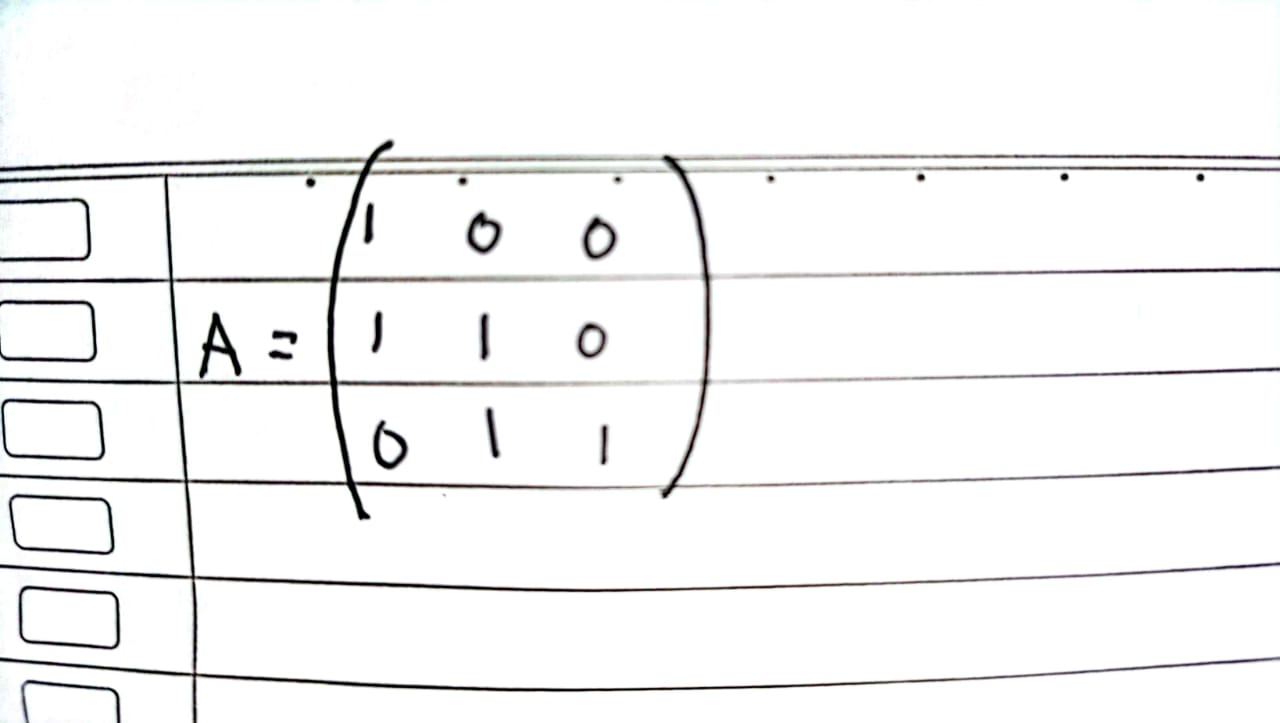 1 0 0
A = 1 1 0
0 1 1